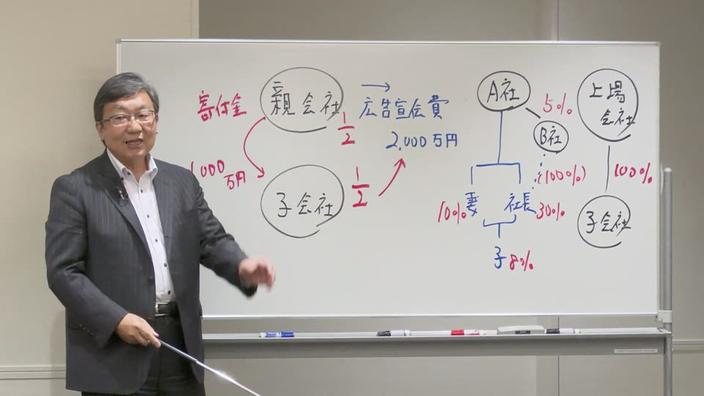 寄付金
親会社
→ 広告宣伝費
1/2
2,000万円
1,000
万円
子会社
1/2
A社
5%
B社
(100%)
妻
10%
社長
30%
子 8%
上場
会社
100%
子会社